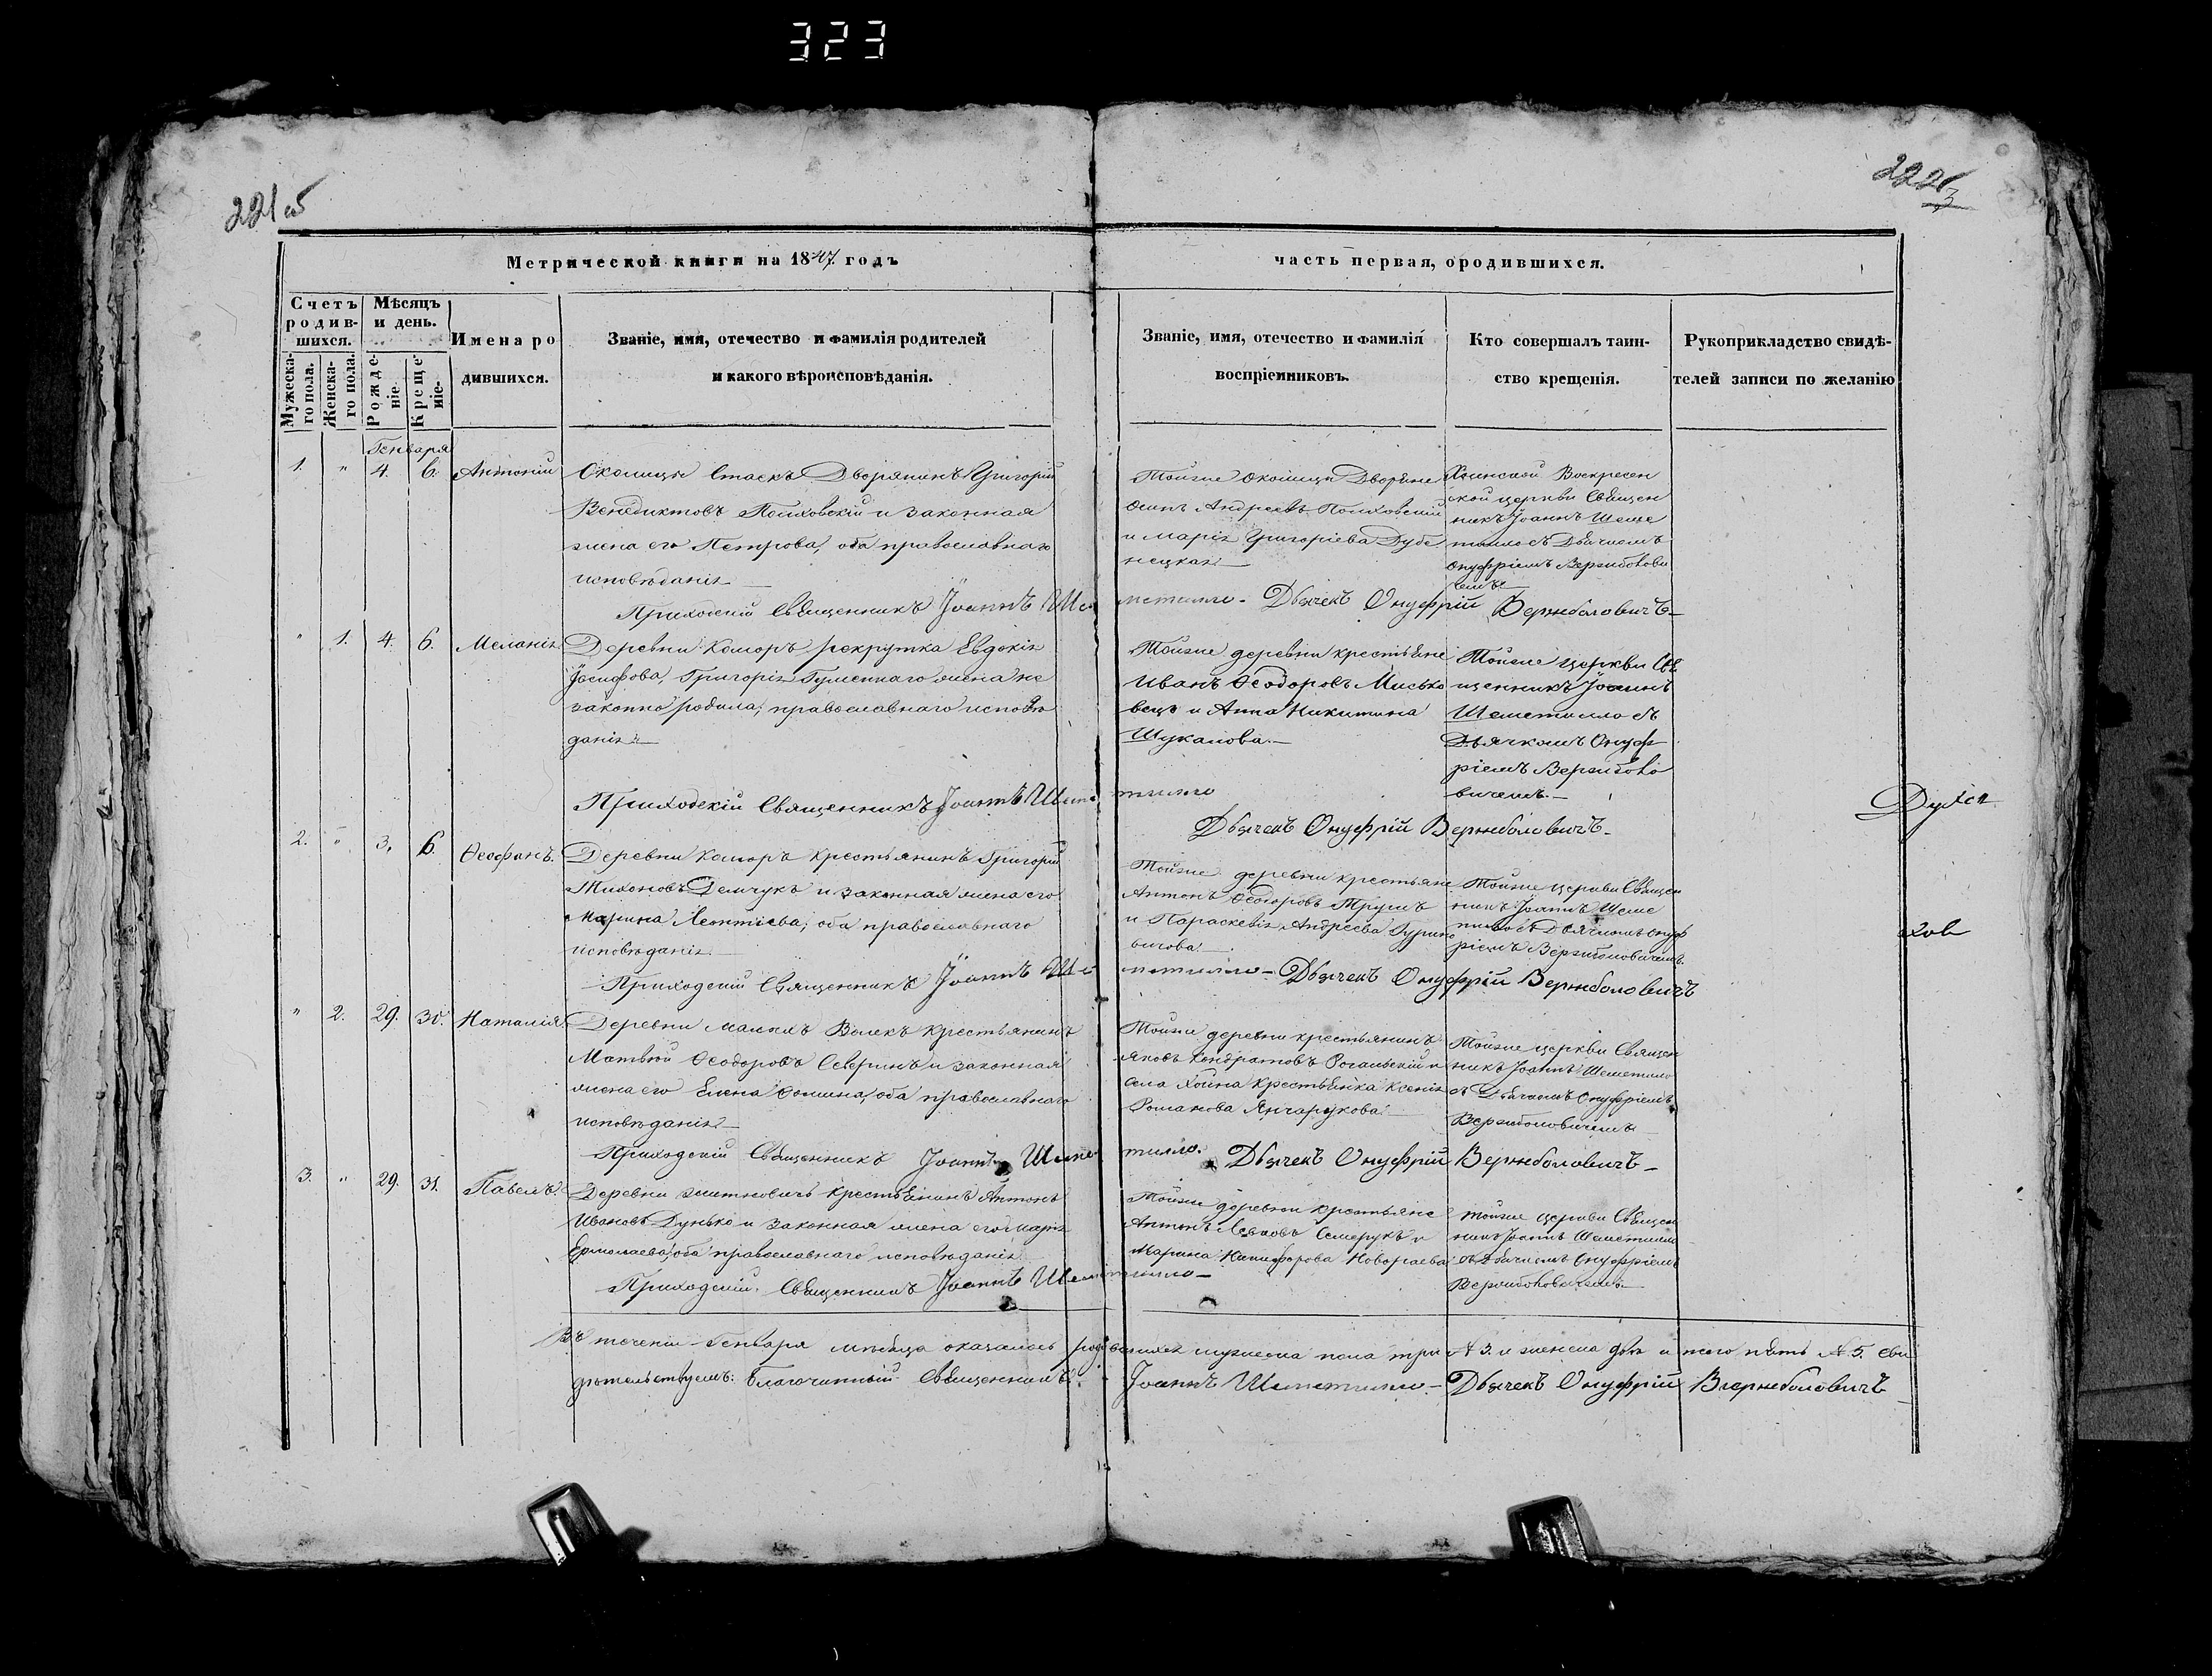 323
221 об
222
3
Метрической книги на 1847 годъ
часть первая, о родившихся.
Счетъ родив-
шихся.
Мужеска-
го пола.
Женска-
го пола.
Мѣсяцъ
и день.
Рожде-
ніе.
Креще-
ніе.
Имена ро
дившихся.
Званіе, имя, отечество и фамилія родителей
и какого вѣроисповѣданія.
Званіе, имя, отечество и фамилія
воспріемниковъ.
Кто совершалъ таин-
ство крещенія.
Рукоприкладство свидѣ-
телей записи по желанію
Генваря
1. " 4. 6. Антоній
Околицы Стаскъ Дворянинъ Григорій
Венедиктовъ Полховскій и законная
жена его Петрова, оба православнаго
исповѣданія
Тойже околицы Дворяне
Осипъ Андреевъ Полховскій
и Марія Григоріева Дубе
нецкая
Хоинской Воскресен
ской церкви Священ
никъ Іоаннъ Шеме
тилло съ Дьячкомъ
Онуфріемъ Вержболови
чемъ
Приходскій Священникъ Іоаннъ Шеметилло - Дьячекъ Онуфрій Вержболовичъ
" 1. 4. 6. Меланія
Деревни Коморъ рекрутка Евдокія
Іосифова, Григорія жена не
законно родила, православнаго исповѣ
данія
Тойже деревни крестьяне
Иванъ Ѳеодоровъ Мисько
вецъ и Анна Никитина
Шукалова.
Тойже церкви Свя
щенникъ Іоаннъ
Шеметилло съ
Дьячкомъ Онуф
ріемъ Вержболо
вичемъ.
Приходскій Священникъ Іоаннъ Шеметилло
Дьячекъ Онуфрій Вержболовичъ
Духов
2. " 3. 6. Ѳеофанъ.
Деревни Коморъ крестьянинъ Григорій
Тихоновъ Демчукъ и законная жена его
Марина Леонтіева, оба православнаго
исповѣданія
Тойже деревни крестьяне
Антонъ Ѳеодоровъ
и Параскевія Андреева Гурино
вичова
Тойже церкви Священ
никъ Іоаннъ Шеме
тилло съ Дьячкомъ Онуф
ріемъ Вержболовичемъ.
ховъ
Приходскій Священникъ Іоаннъ Шеметилло - Дьячекъ Онуфрій Вержболовичъ
" 2. 29. 30. Наталія
Деревни Малыхъ Волекъ крестьянинъ
Матвѣй Ѳеодоровъ Северинъ и законная
жена его Елена Ѳомина, оба православнаго
исповѣданія
Тойже деревни крестьянинъ
Яковъ Кондратовъ Рогальскій и
села Хойна крестьянка Ксенія
Романова Янчарукова
Тойже церкви Священ
никъ Іоаннъ Шеметилло
съ Дьячкомъ Онуфріемъ
Вержболовичемъ
Приходскій Священникъ Іоаннъ Шеметилло. Дьячекъ Онуфрій Вержболовичъ
3. " 29. 31. Павелъ
Деревни Житновичъ крестьянинъ Антонъ
Ивановъ Дунько и законная жена его Марія
Ермолаева, оба православнаго исповѣданія
Тойже деревни крестьяне
Антонъ Леоновъ Семерукъ и
Марина Никифорова
Тойже церкви Священ
никъ Іоаннъ Шеметилло
съ Дьячкомъ Онуфріемъ
Вержболовичемъ
Приходскій Священникъ Іоаннъ Шеметилло
Въ теченіи Генваря мѣсяца оказалось родившихся мужеска пола три № 3. и женска двѣ итого пять № 5. сви
дѣтельствуемъ: Благочинный Священникъ Іоаннъ Шеметилло - Дьячекъ Онуфрій Вержболовичъ